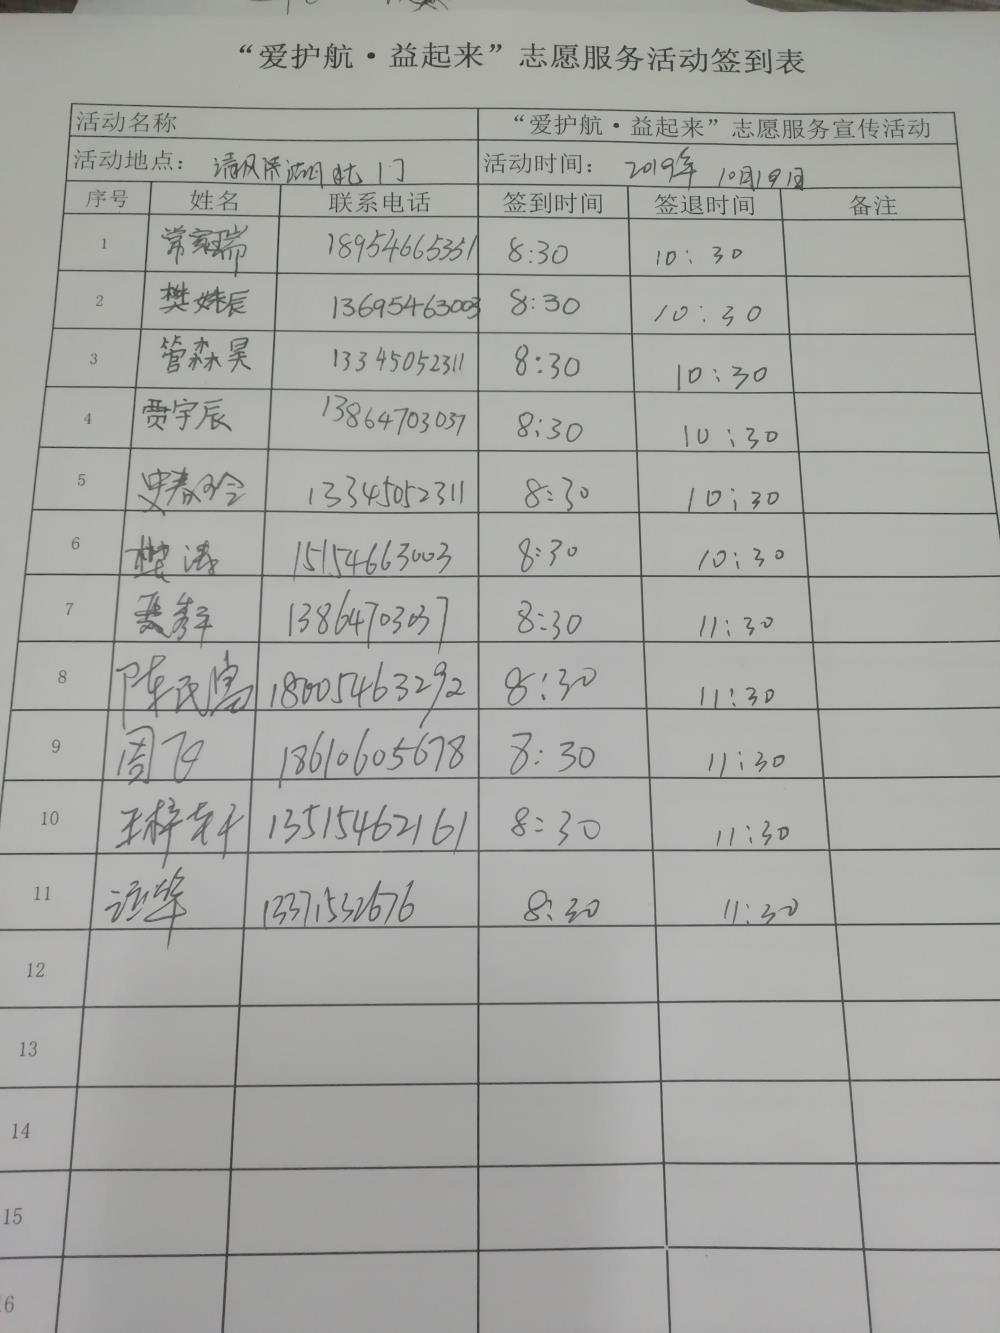 “爱护航·益起来”志愿服务活动签到表
活动名称 “爱护航·益起来”志愿服务宣传活动
活动地点： 清风 湖 门 活动时间： 2019年10月19日
序号 姓名 联系电话 签到时间 签退时间 备注
1 常家瑞 18954665351 8:30 10:30
2 樊姝辰 13695463003 8:30 10:30
3 管森昊 13345052311 8:30 10:30
4 贾宇辰 13864703037 8:30 10:30
5 史春玲 13345052311 8:30 10:30
6 樊涛 15154663003 8:30 10:30
7 13864703037 8:30 11:30
8 陈民富 18005463292 8:30 11:30
9 周飞 18610605678 8:30 11:30
10 王梓轩 13515462161 8:30 11:30
11 13371532676 8:30 11:30
12
13
14
15
16